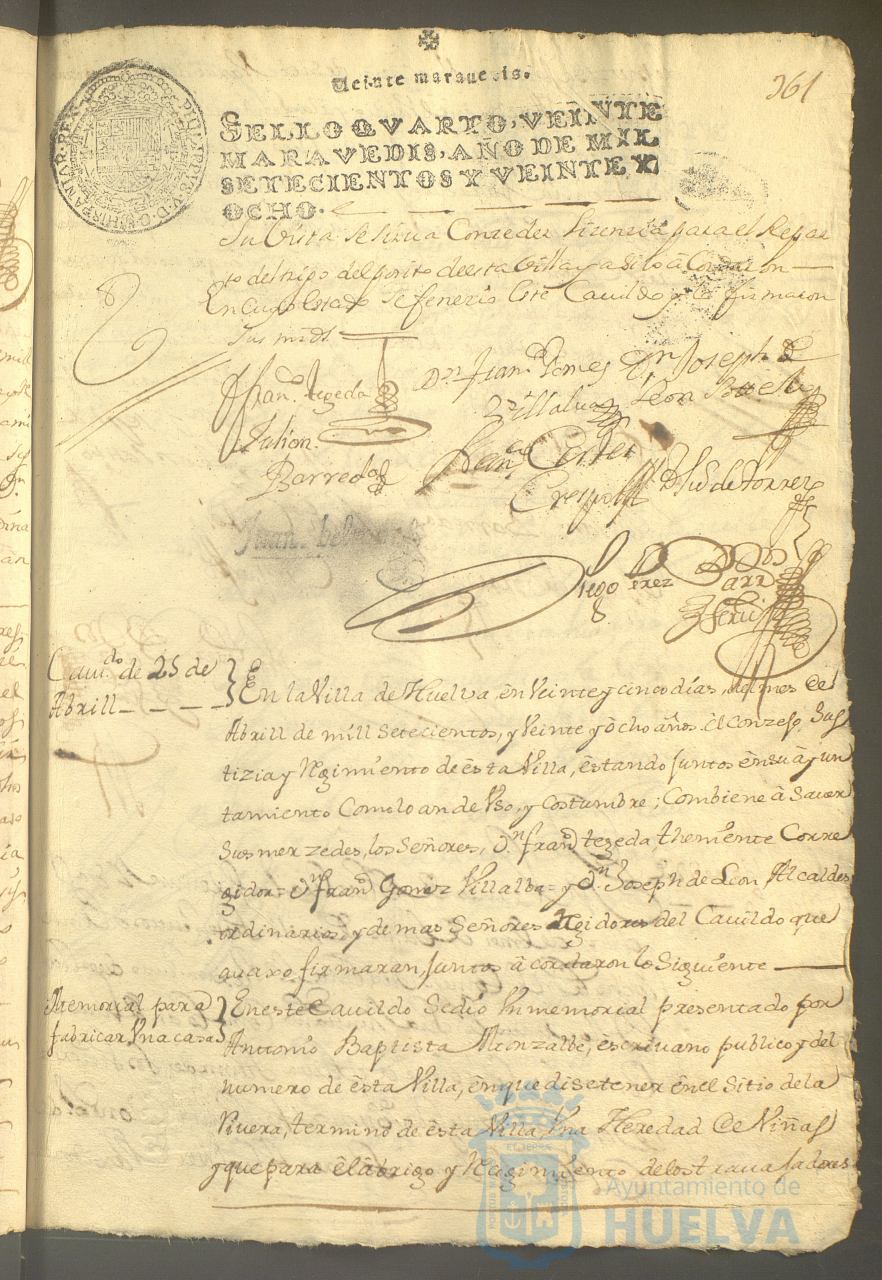 Veinte maravedis.
361
SELLO QVARTO, VEINTE
MARAVEDIS, AÑO DE MIL
SETECIENTOS Y VEINTE Y
OCHO.
PHILIPPVS V D G HISPANIAR REX
Su Usta se sirva Conzeder lizencia para el Repar
to del trigo del posito de esta Villa y asi lo acordaron
En cuyo estado se fenezio este Cavildo y lo firmaron
sus mrds
Fran.co tegeda
Dn Juan Gomez
Villalva
Dn Joseph de
Leon
Julian
Barreda
Cortes
Crespo
de torres
Juan
Diego Perez
Cavi.do de 25 de
Abrill
En la Villa de Huelva, en Veinte y cinco dias, del mes de
Abrill de mill Setecientos, y Veinte y ôcho años. el Conzejo, Jus
tizia y Regimiento de êsta Villa, êstando Juntos en su âyun
tamiento Como lo an de Uso, y Costumbre, Combiene â Saver
Sus merzedes, los Señores, Dn fran.co tegeda theniente Corre
gidor = Dn fran.co Gomez Villalba = y Dn Joseph de Leon Alcaldes
ordinarios, y demas Señores Regidores del Cavildo que
avaxo firmaran Juntos âcordaron lo Siguiente
Memorial para
fabricar Una casa
En este Cavildo Se dio Un memorial presentado por
Antonio Baptista Monzalbe, escrivano publico y del
numero de êsta Villa, en que dise tener en el Sitio de la
Rivera, termino de êsta Villa, Una Heredad de Viñas
y que para el abrigo y Recogimiento de los travajadores
Ayuntamiento de
HUELVA